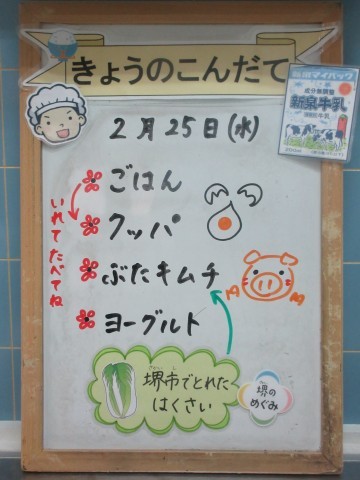 きょうのこんだて
新泉マイパック
成分無調整
新泉牛乳
2月25日(水)
ごはん
いれてたべてね
クッパ
ぶたキムチ
ヨーグルト
堺市でとれた
はくさい
堺の
めぐみ